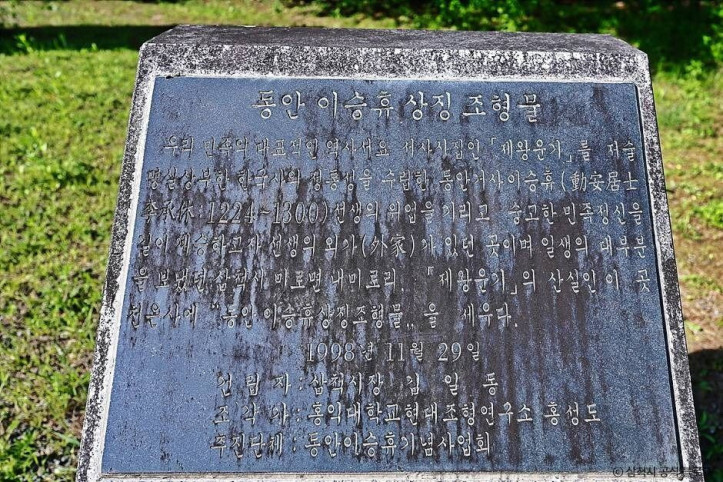 동안 이승휴 상징 조형물
우리 민족의 대표적인 역사서요 서사시집인 「제왕운기」를 저술
명실상부한 한국사의 정통성을 수립한 동안거사 이승휴 (動安居士
李承休 : 1224~1300) 선생의 위업을 기리고 숭고한 민족정신을
길이 계승하고자 선생의 외가(外家)가 있던 곳이며 일생의 대부분
을 보냈던 삼척시 미로면 내미로리. 「제왕운기」의 산실인 이 곳
천은사에 "동안 이승휴상징조형물„ 을 세우다.
1998년 11월 29일
건 립 자 : 삼척시장 김 일 동
조 각 가 : 홍익대학교현대조형연구소 홍성도
추진단체 : 동안이승휴기념사업회
© 삼척시 공식